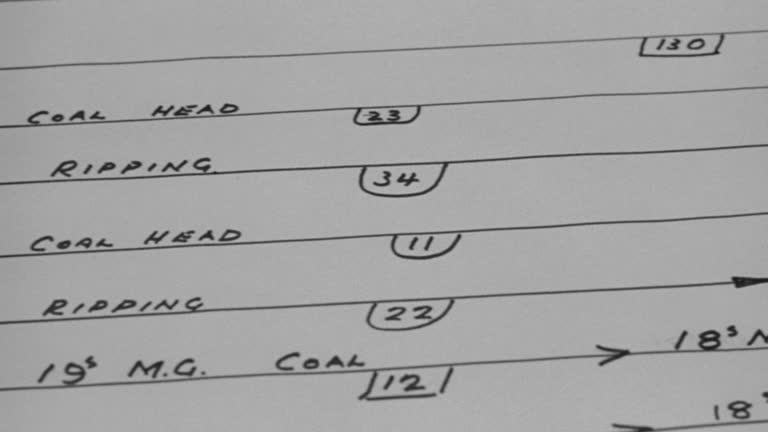 130
COAL HEAD 23
RIPPING 34
COAL HEAD 11
RIPPING 22
19s M.G. COAL 12 18s
18